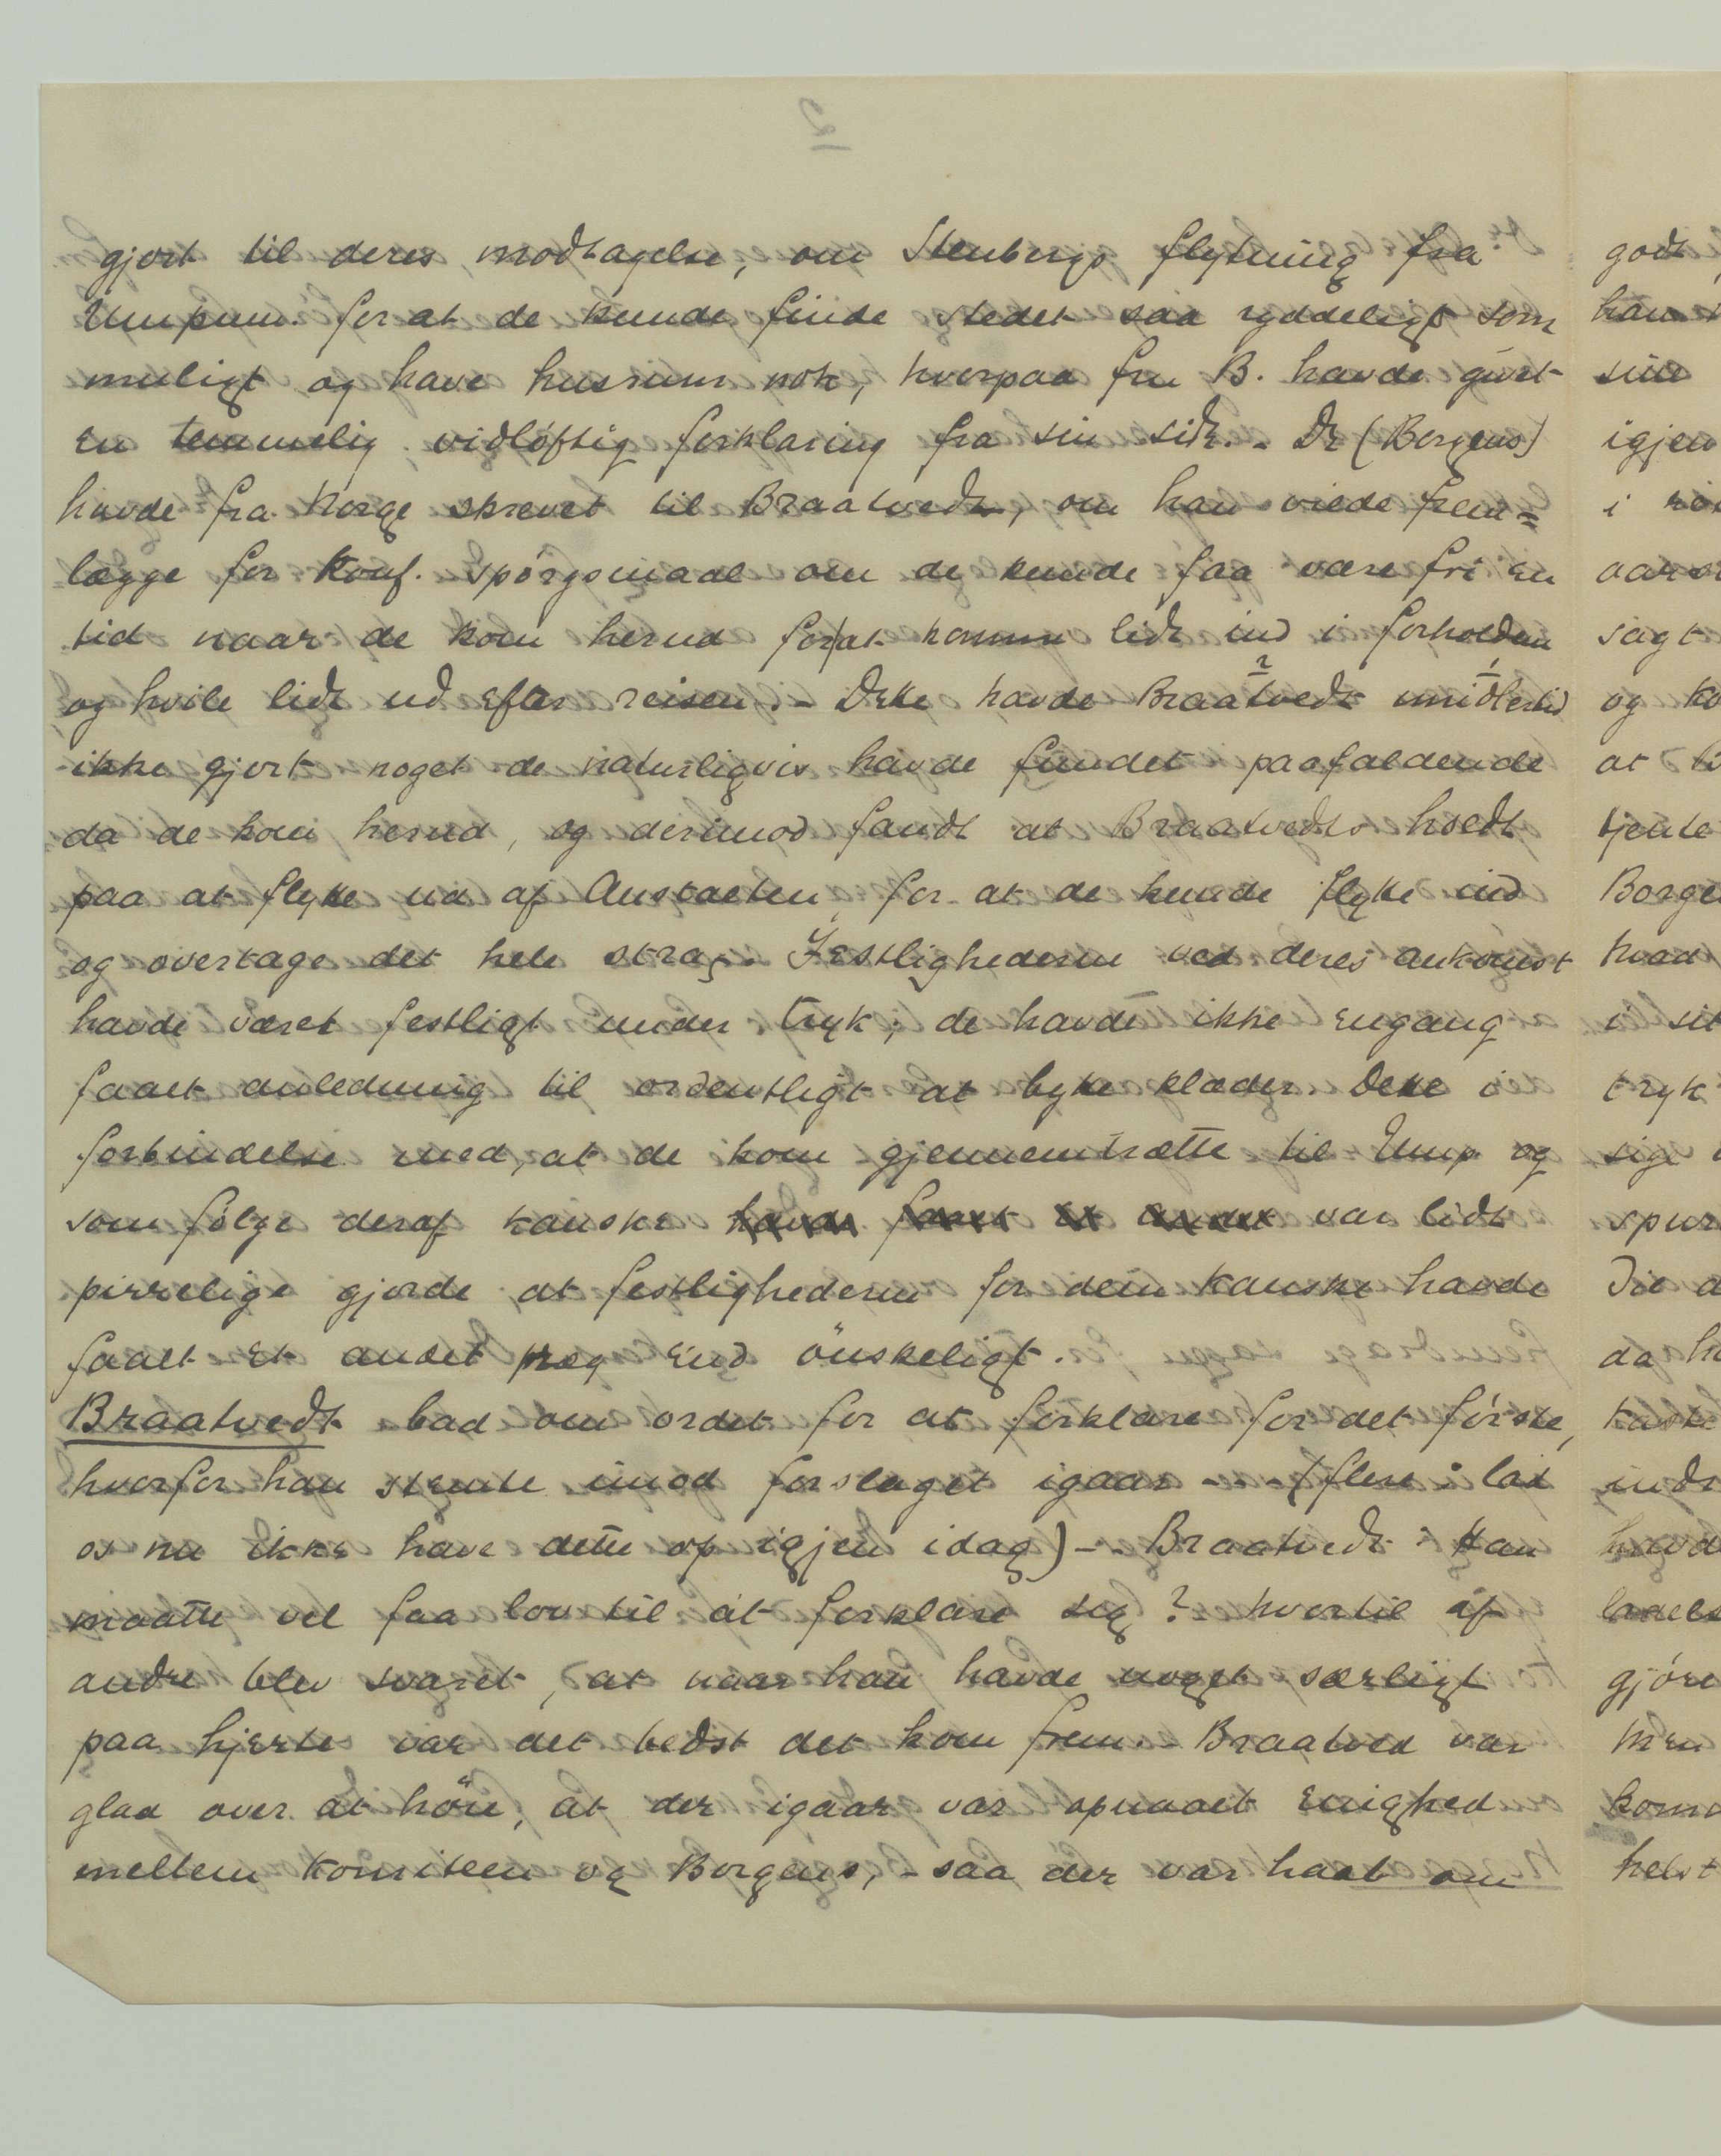 gjort til deres modtagelse, om Stenbergs flytning fra
Umpum. for at de kunde finde stedet saa ryddeligt som
muligt og have husrum nok, hvorpaa fru B. havde givet
en temmelig vidløftig forklaring fra sin side. - De (Borgens)
havde fra Norge skrevet til Braatvedt, om han vilde frem=
lægge for Konf. spørgsmaal om de kunde faa være fri en
tid naar de kom herud for/at komme lidt ind i forholdene
og hvile lidt ud efter reisen. - Dette havde Braatvedt 2 imidlertid 1
ikke gjort noget de naturligvis havde fundet paafaldende
da de kom herud, og derimod fandt at Braatvedts holdt
paa at flytte ud af Anstalten, for at de kunde flytte ind
og overtage det hele strax. Festlighederne ved deres ankomst
havde været festligt under tryk; de havde ikke engang
faaet anledning til ordentligt at bytte klæder. Dette i
forbindelse med, at de kom gjennemtrætte til Ump. og
som følge deraf kanske havde faaet et andet var lidt
pirrelige gjorde at festlighederne for dem kanske havde
faaet et andet præg end önskeligt.
Braatvedt bad om ordet for at forklare for det første,
hvorfor han stemte imod forslaget igaar - - (flere: lad
os nu ikke have dette op igjen idag) - - Braatvedt: Han
maatte vel faa lov til at forklare sig? hvortil af
andre blev svaret, at naar han havde noget særligt
paa hjerte var det bedst det kom frem. - Braatved var
glad over at høre, at der igaar var opnaaet enighed
mellem Komiteen og Borgens, - saa der var haab om
godt
han
sine
igjen
i
sagt
og
at B
tjente
Borge
hvad
i sit
tryk
sige
spur
da
kaste
havd
gjøre
men
helst